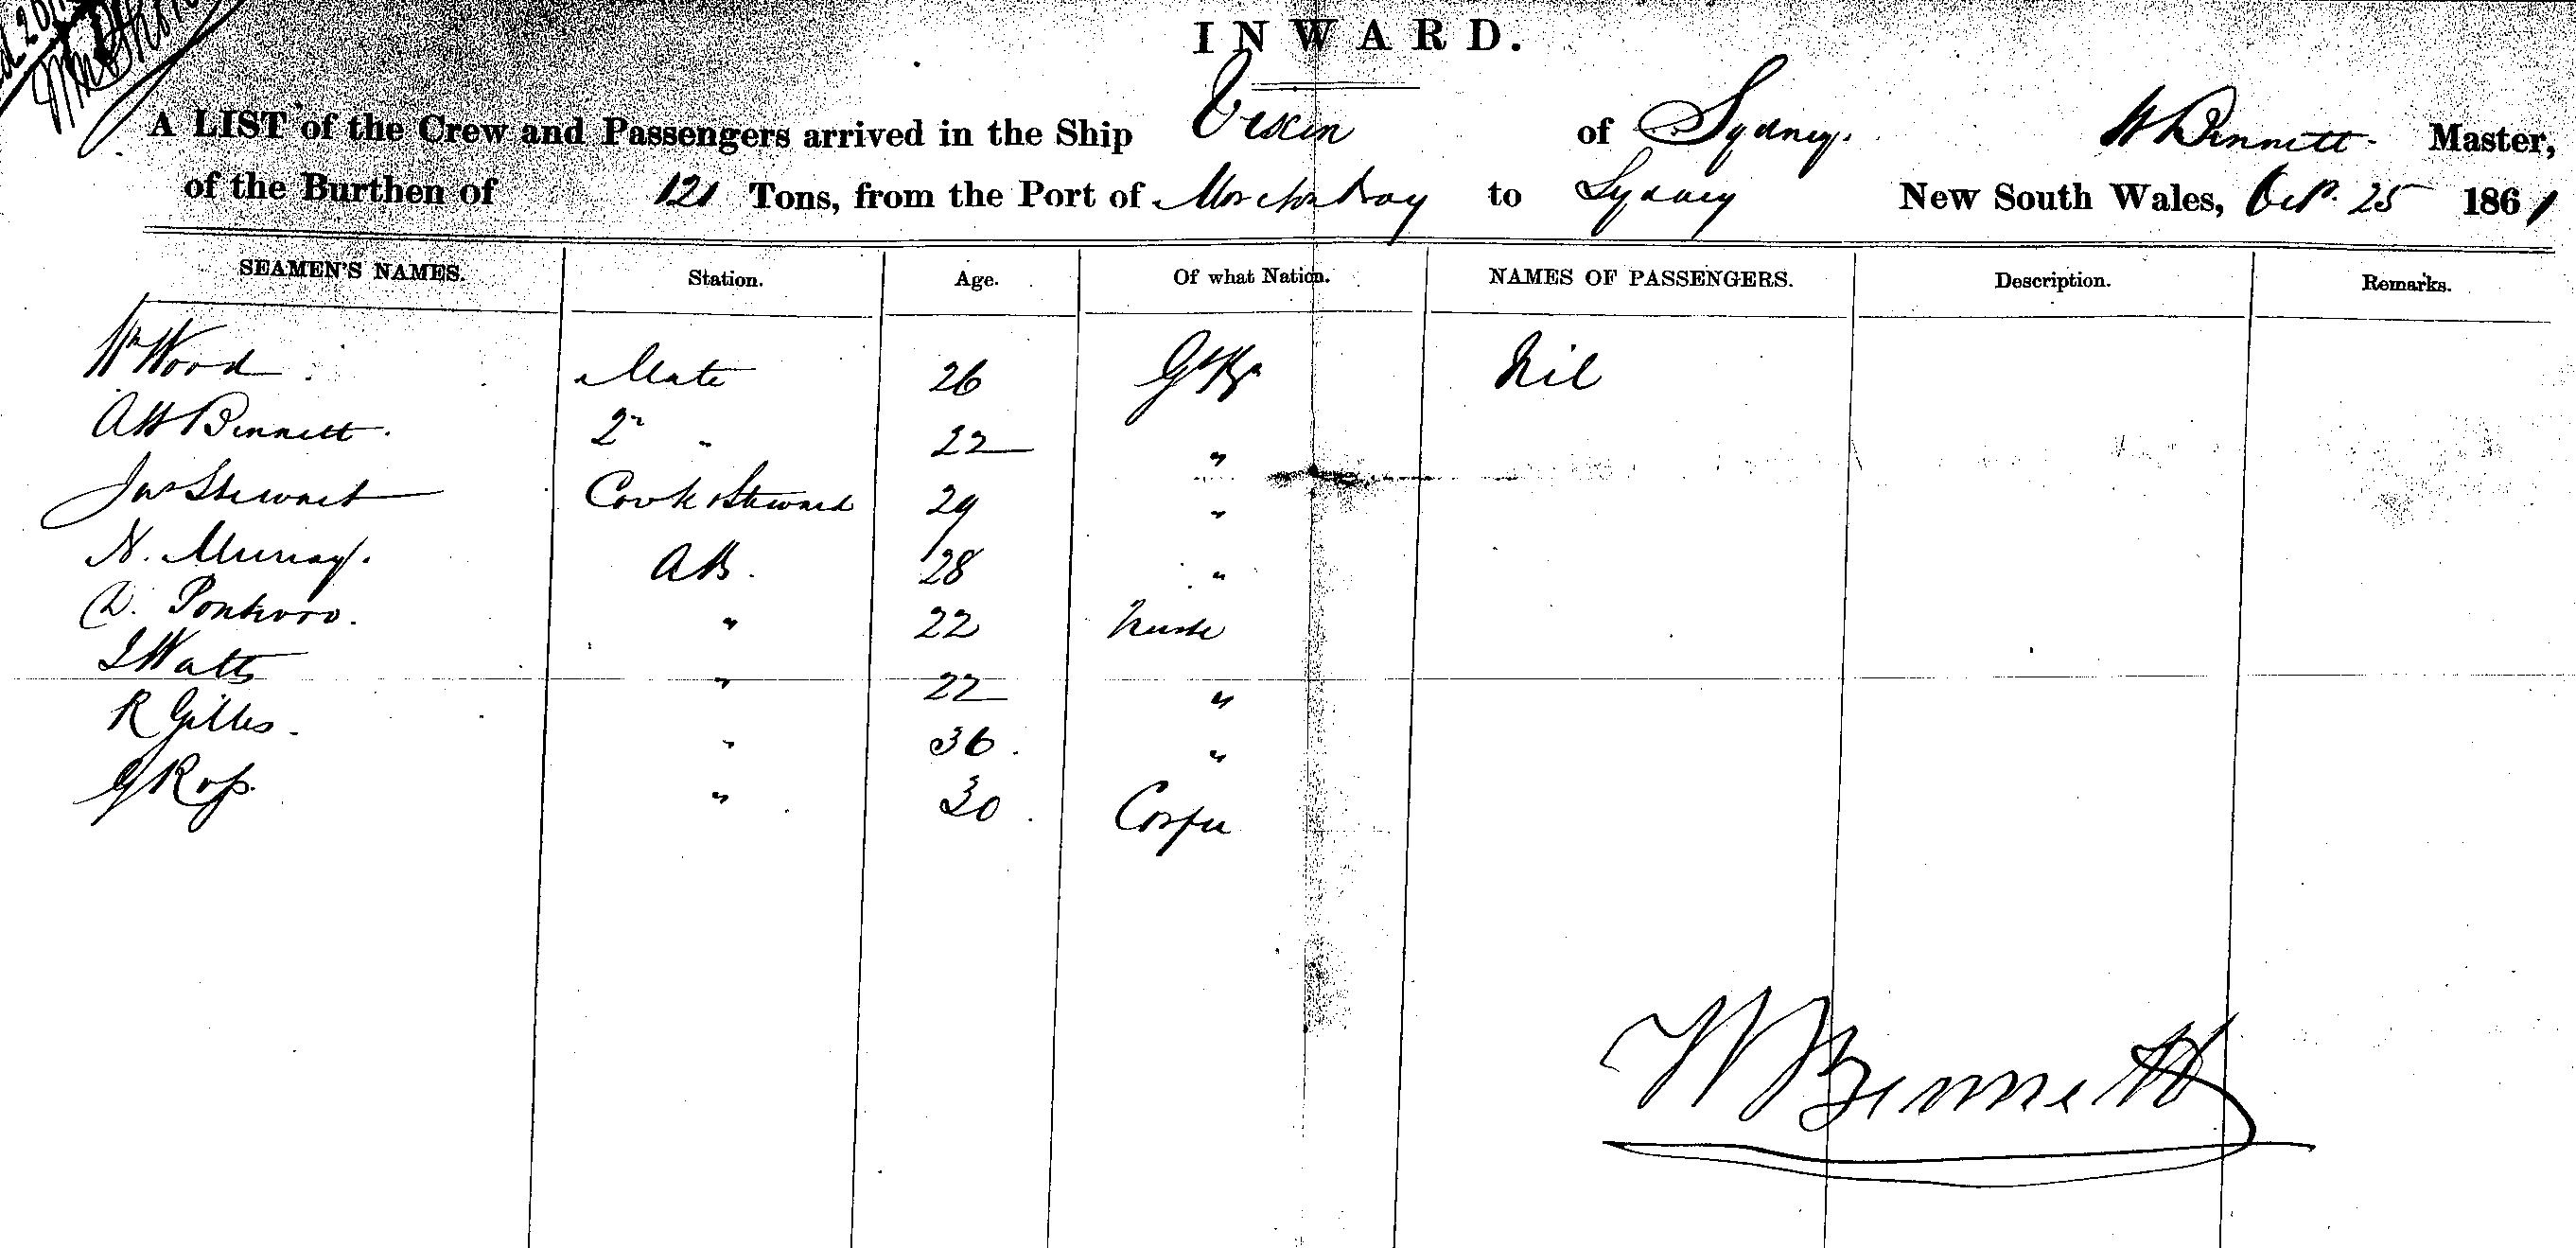 INWARD.
A LIST of the Crew and Passengers arrived in the Ship of Sydney. W Bennett. Master,
of the Burthen of 121 Tons, from the Port of Moreton Bay to Sydney New South Wales, Oct. 25 1861
SEAMEN'S NAMES. Station. Age. Of what Nation. NAMES OF PASSENGERS. Description. Remarks.
Wm Wood Mate 26 Gt Bn Nil
AW Bennett. 2nd " 22 "
Jas Stewart Cook & Steward 29 "
N. Murray. AB. 28 "
D. " 22
J Watts " 22 "
R Gilles. " 36. "
G Ross. " 30. Corfu
W Bennett